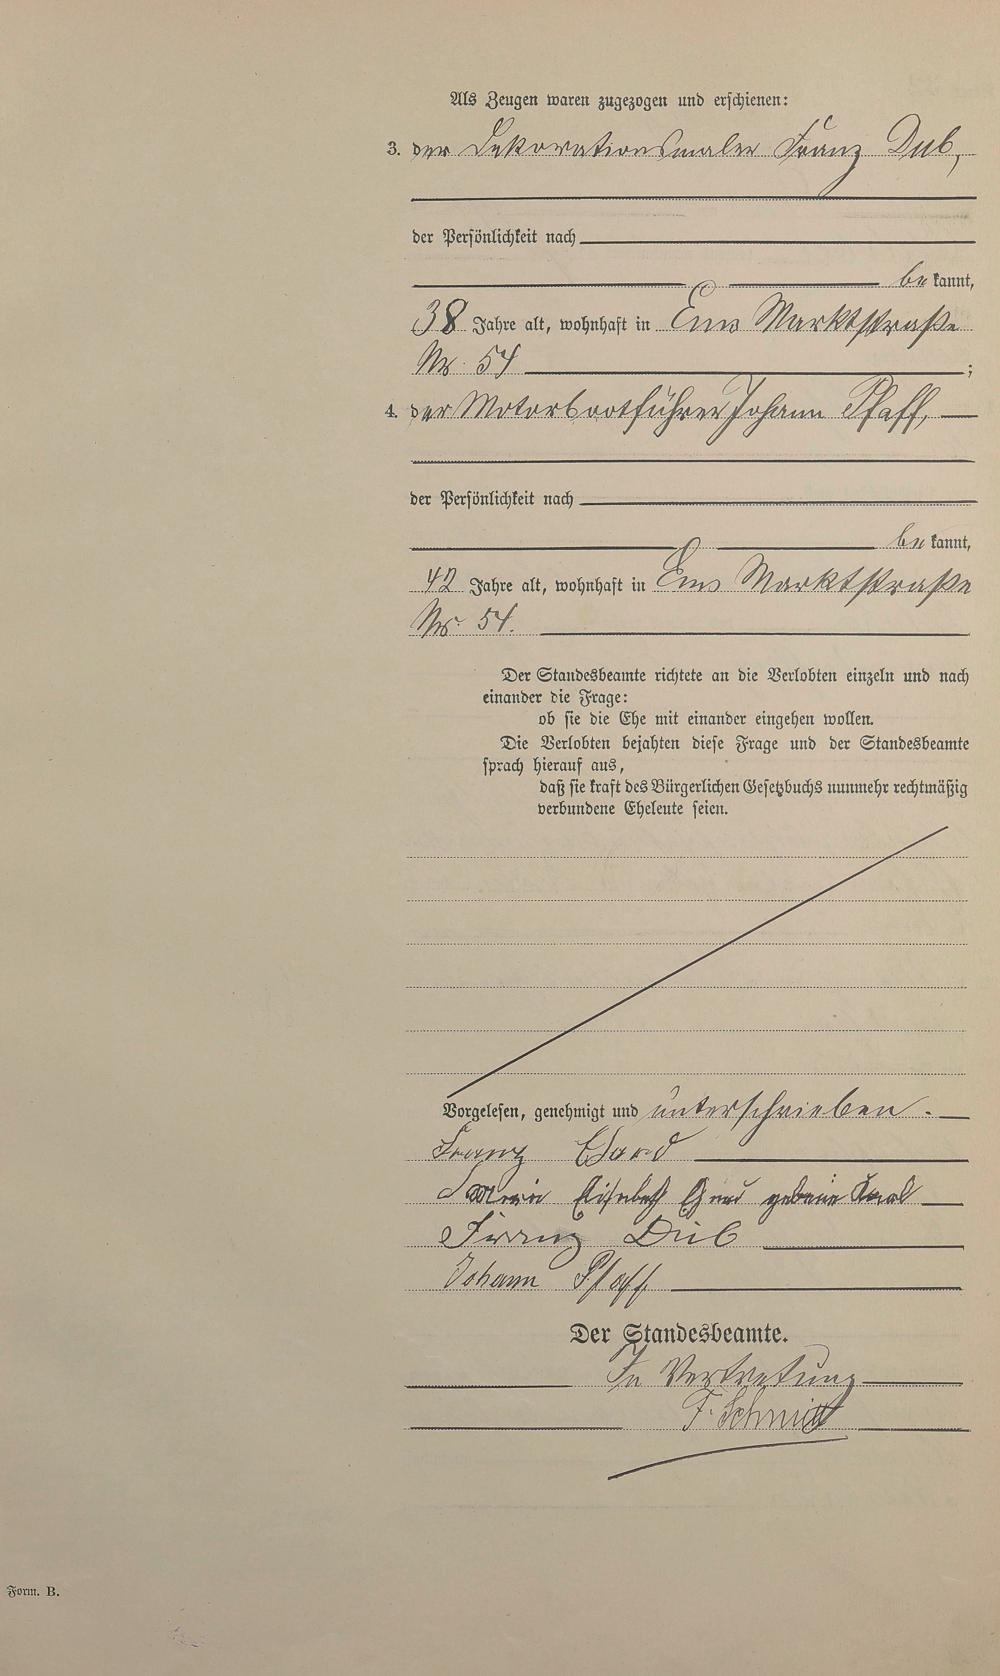 Als Zeugen waren zugezogen und erschienen:
3. der Dekorationsmaler Franz Dub,
der Persönlichkeit nach
be kannt,
38 Jahre alt, wohnhaft in Ems Marktstraße
Nr. 54 ;
4. der Motorbootführer Johann Pfaff,
der Persönlichkeit nach
be kannt,
42 Jahre alt, wohnhaft in Ems Marktstraße
Nr. 54.
Der Standesbeamte richtete an die Verlobten einzeln und nach
einander die Frage:
ob sie die Ehe mit einander eingehen wollen.
Die Verlobten bejahten diese Frage und der Standesbeamte
sprach hierauf aus,
daß sie kraft des Bürgerlichen Gesetzbuchs nunmehr rechtmäßig
verbundene Eheleute seien.
Vorgelesen, genehmigt und unterschrieben.
Franz
Elisabeth
Franz Dub
Johann Pfaff
Der Standesbeamte.
In Vertretung
F. Schmitt
Form. B.